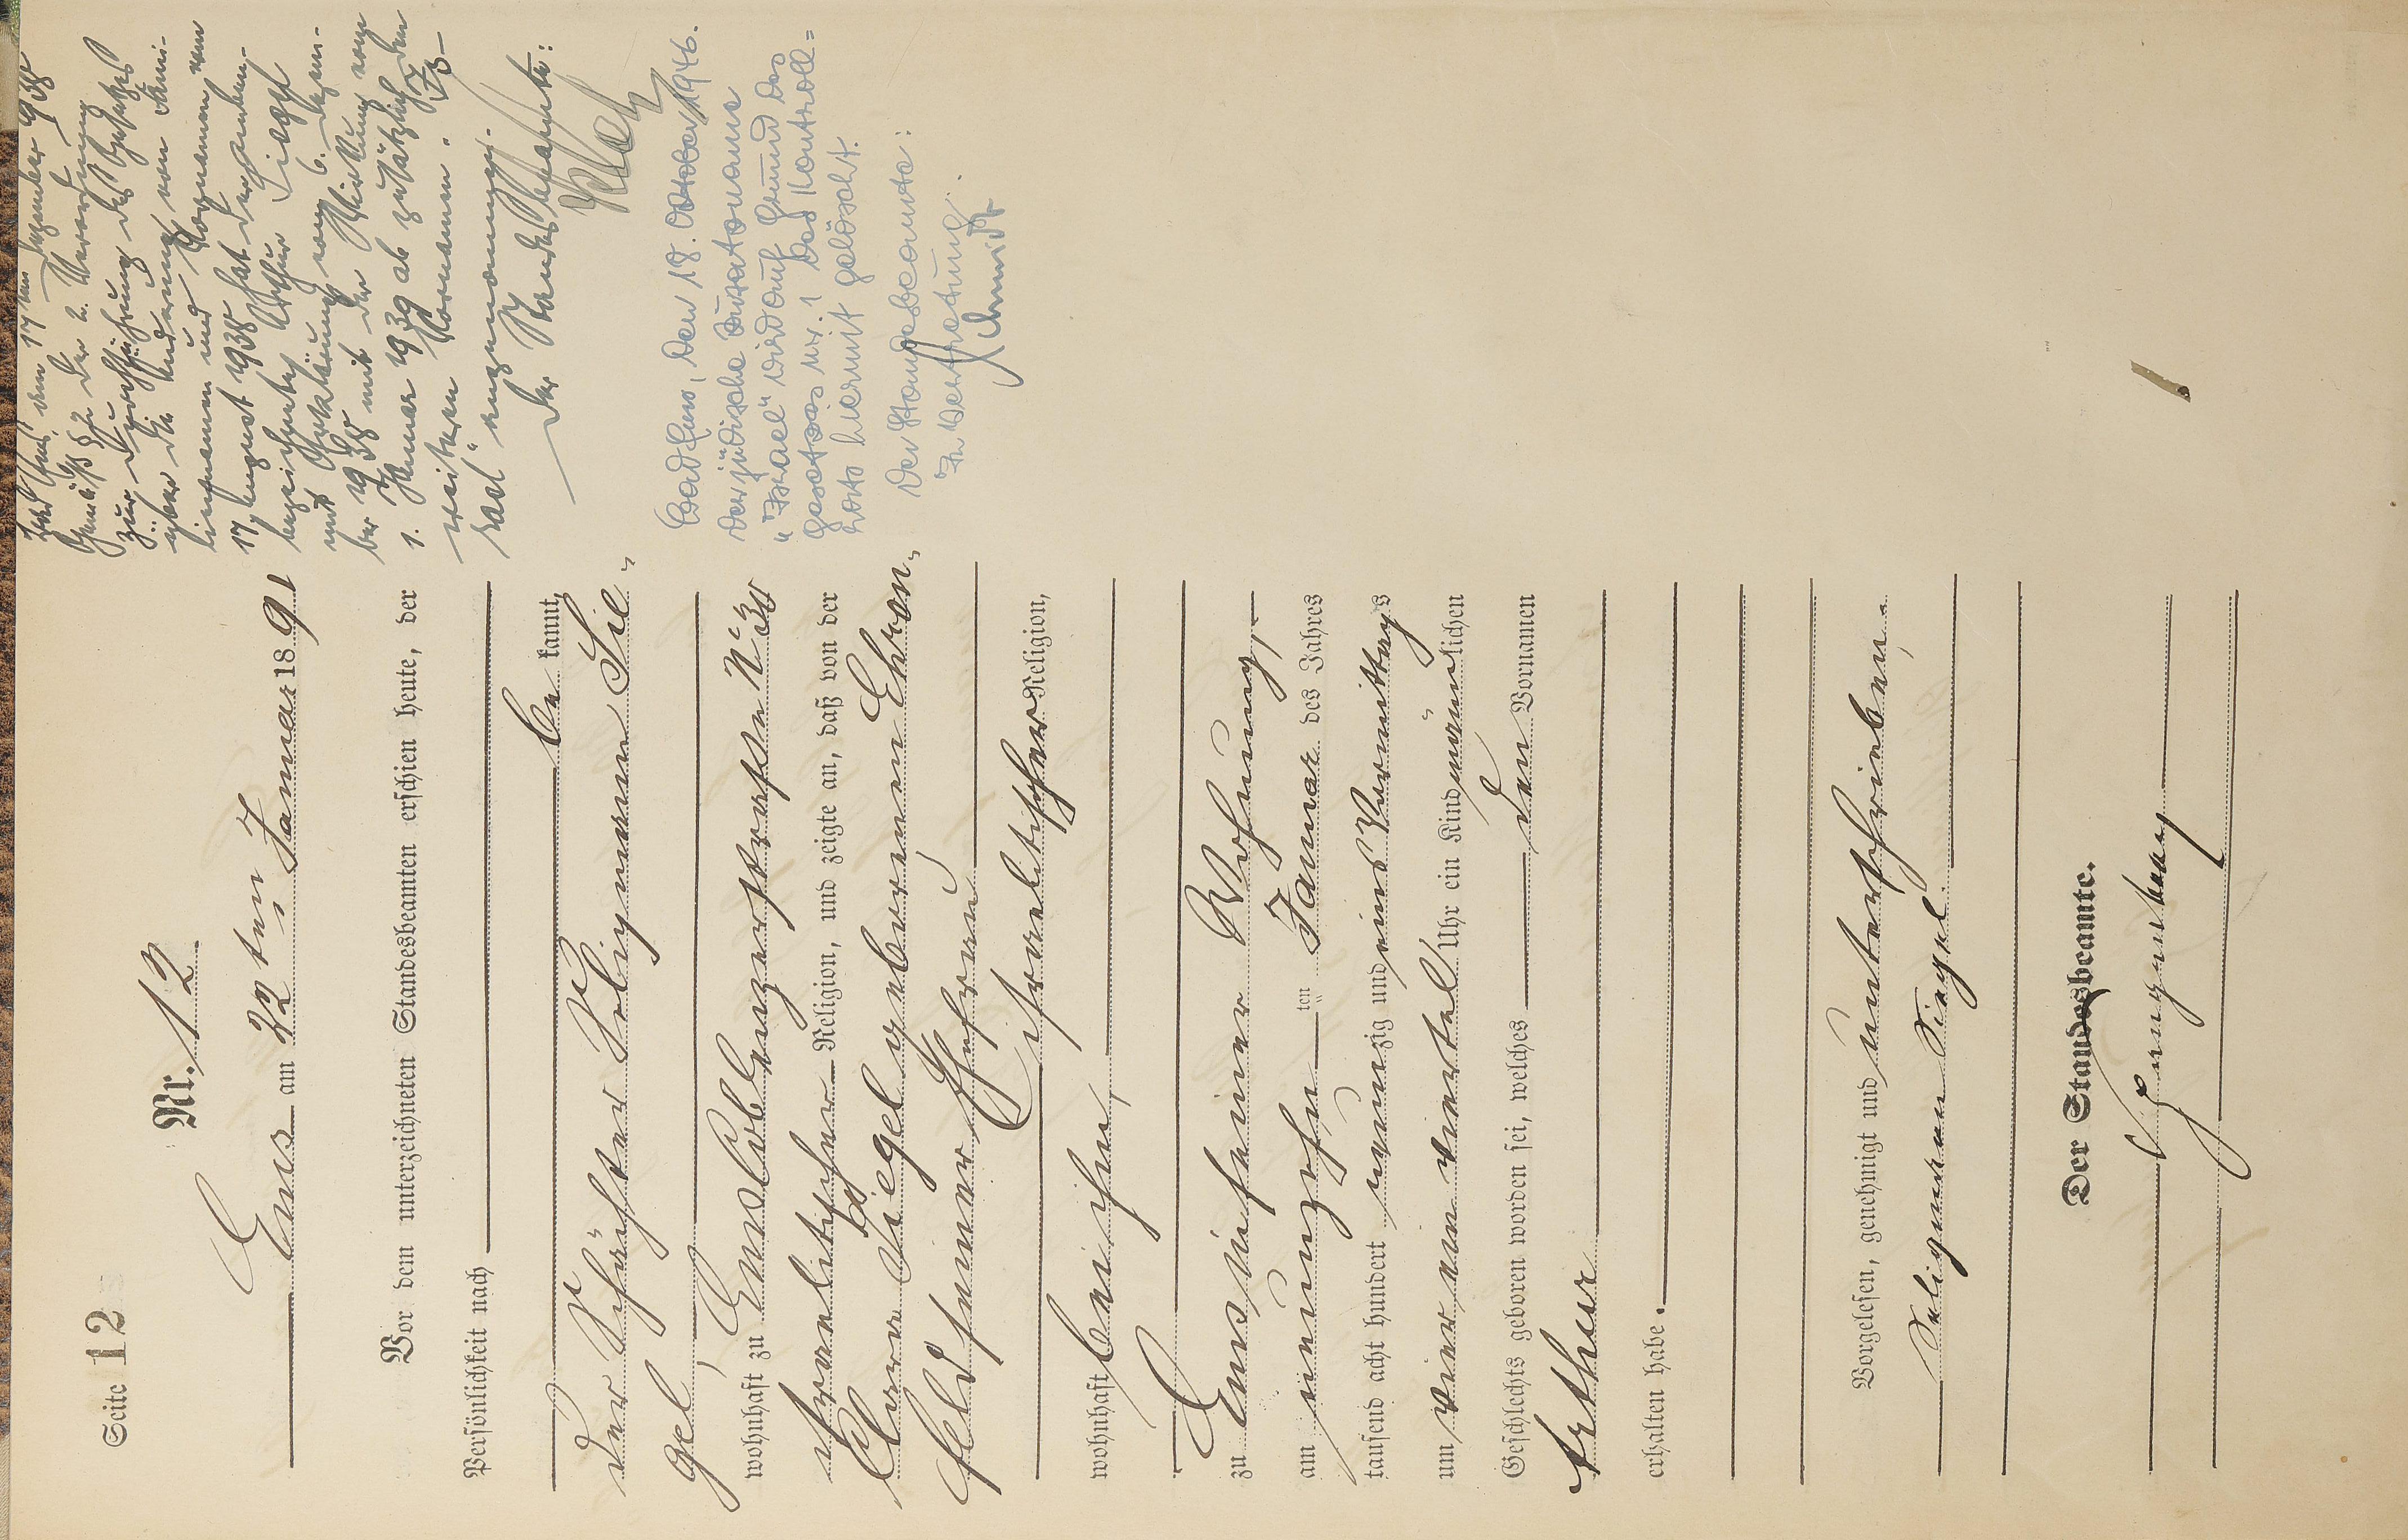 Seite 12
Nr. 12
Ems am 22ten Januar 1891
Vor dem unterzeichneten Standesbeamten erschien heute, der
Persönlichkeit nach
be kannt,
der Schächter Seligmann Sie-
gel,
wohnhaft zu Ems Coblenzerstrasse No 30
israelitischer Religion, und zeigte an, daß von der
Clara Siegel geborenen Ehren-
feld seiner Ehefrau
israelitischer Religion,
wohnhaft bei ihm,
zu Ems in seiner Wohnung,
am neunzehnten Januar des Jahres
tausend acht hundert neunzig und eins Vormittags
um vier ein viertel Uhr ein Kind männlichen
Geschlechts geboren worden sei, welches den Vornamen
Arthur
erhalten habe.
Vorgelesen, genehmigt und unterschrieben,
Seligmann Siegel.
Der Standesbeamte.
Bad Ems, den 17ten Dezember 1938
Gemäß § 2 der 2. Verordnung
zur Durchführung des Gesetzes
über die Änderung von Fami-
liennamen und Vornamen vom
17. August 1938 hat der neben-
bezeichnete Arthur Siegel
mit Erklärung vom 6. Dezem-
ber 1938 mit der Wirkung vom
1. Januar 1939 ab zusätzlich den
weiteren Vornamen "Is-
rael" angenommen.
Der Standesbeamte:
Bad Ems, den 18. Oktober 1946.
Der jüdische Zusatzname
"Israel" wird auf Grund des
Gesetzes Nr. 1 des Kontroll=
rats hiermit gelöscht.
Der Standesbeamte:
In Vertretung:
Schmidt